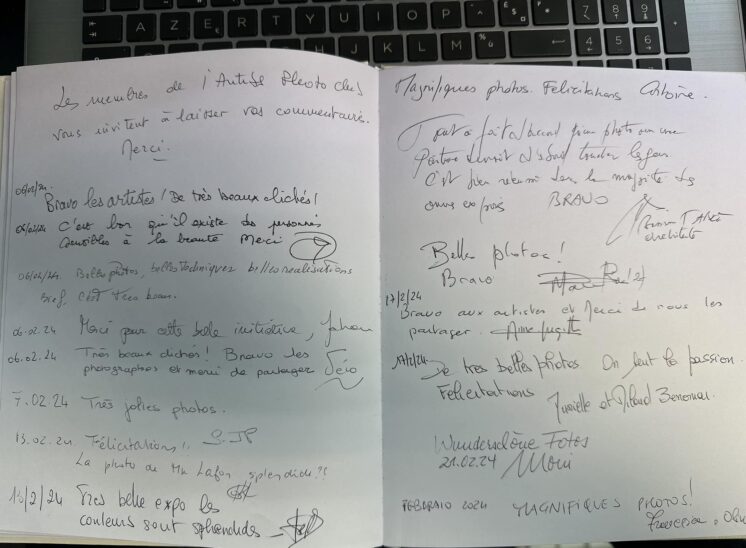 A Z E R T Y U I O P
J K L M
7 8 9
4 5 6
Les membres de l'Antibes Photo club
vous invitent à laisser vos commentaires.
Merci.
06/02/24
Bravo les artistes! De très beaux clichés!
06/02/24 C'est bon qu'il existe des personnes
sensibles à la beauté Merci
06/02/24 Belles photos, belles techniques belles réalisations
Bref, C'est très beau.
06.02.24 Merci pour cette belle initiative,
06.02.24 Très beaux clichés! Bravo les
photographes et merci de partager
7.02.24 Très jolies photos.
13.02.24 Félicitations
La photo de Mr Lafon splendide!!
14/2/24 Très belle expo les
couleurs sont splendides
Magnifiques photos. Felicitations
Tout à fait d'accord une photo ou une
doit d'abord toucher le
C'est bien dans la majorité des
BRAVO
Belles photos!
Bravo
17/2/24
Bravo aux artistes et Merci de nous les
partager.
17/2/24 De très belles photos On sent la passion.
Félicitations
et
Wunderschöne Fotos
21.02.24
FEBBRAIO 2024 MAGNIFIQUES PHOTOS!
Francesca